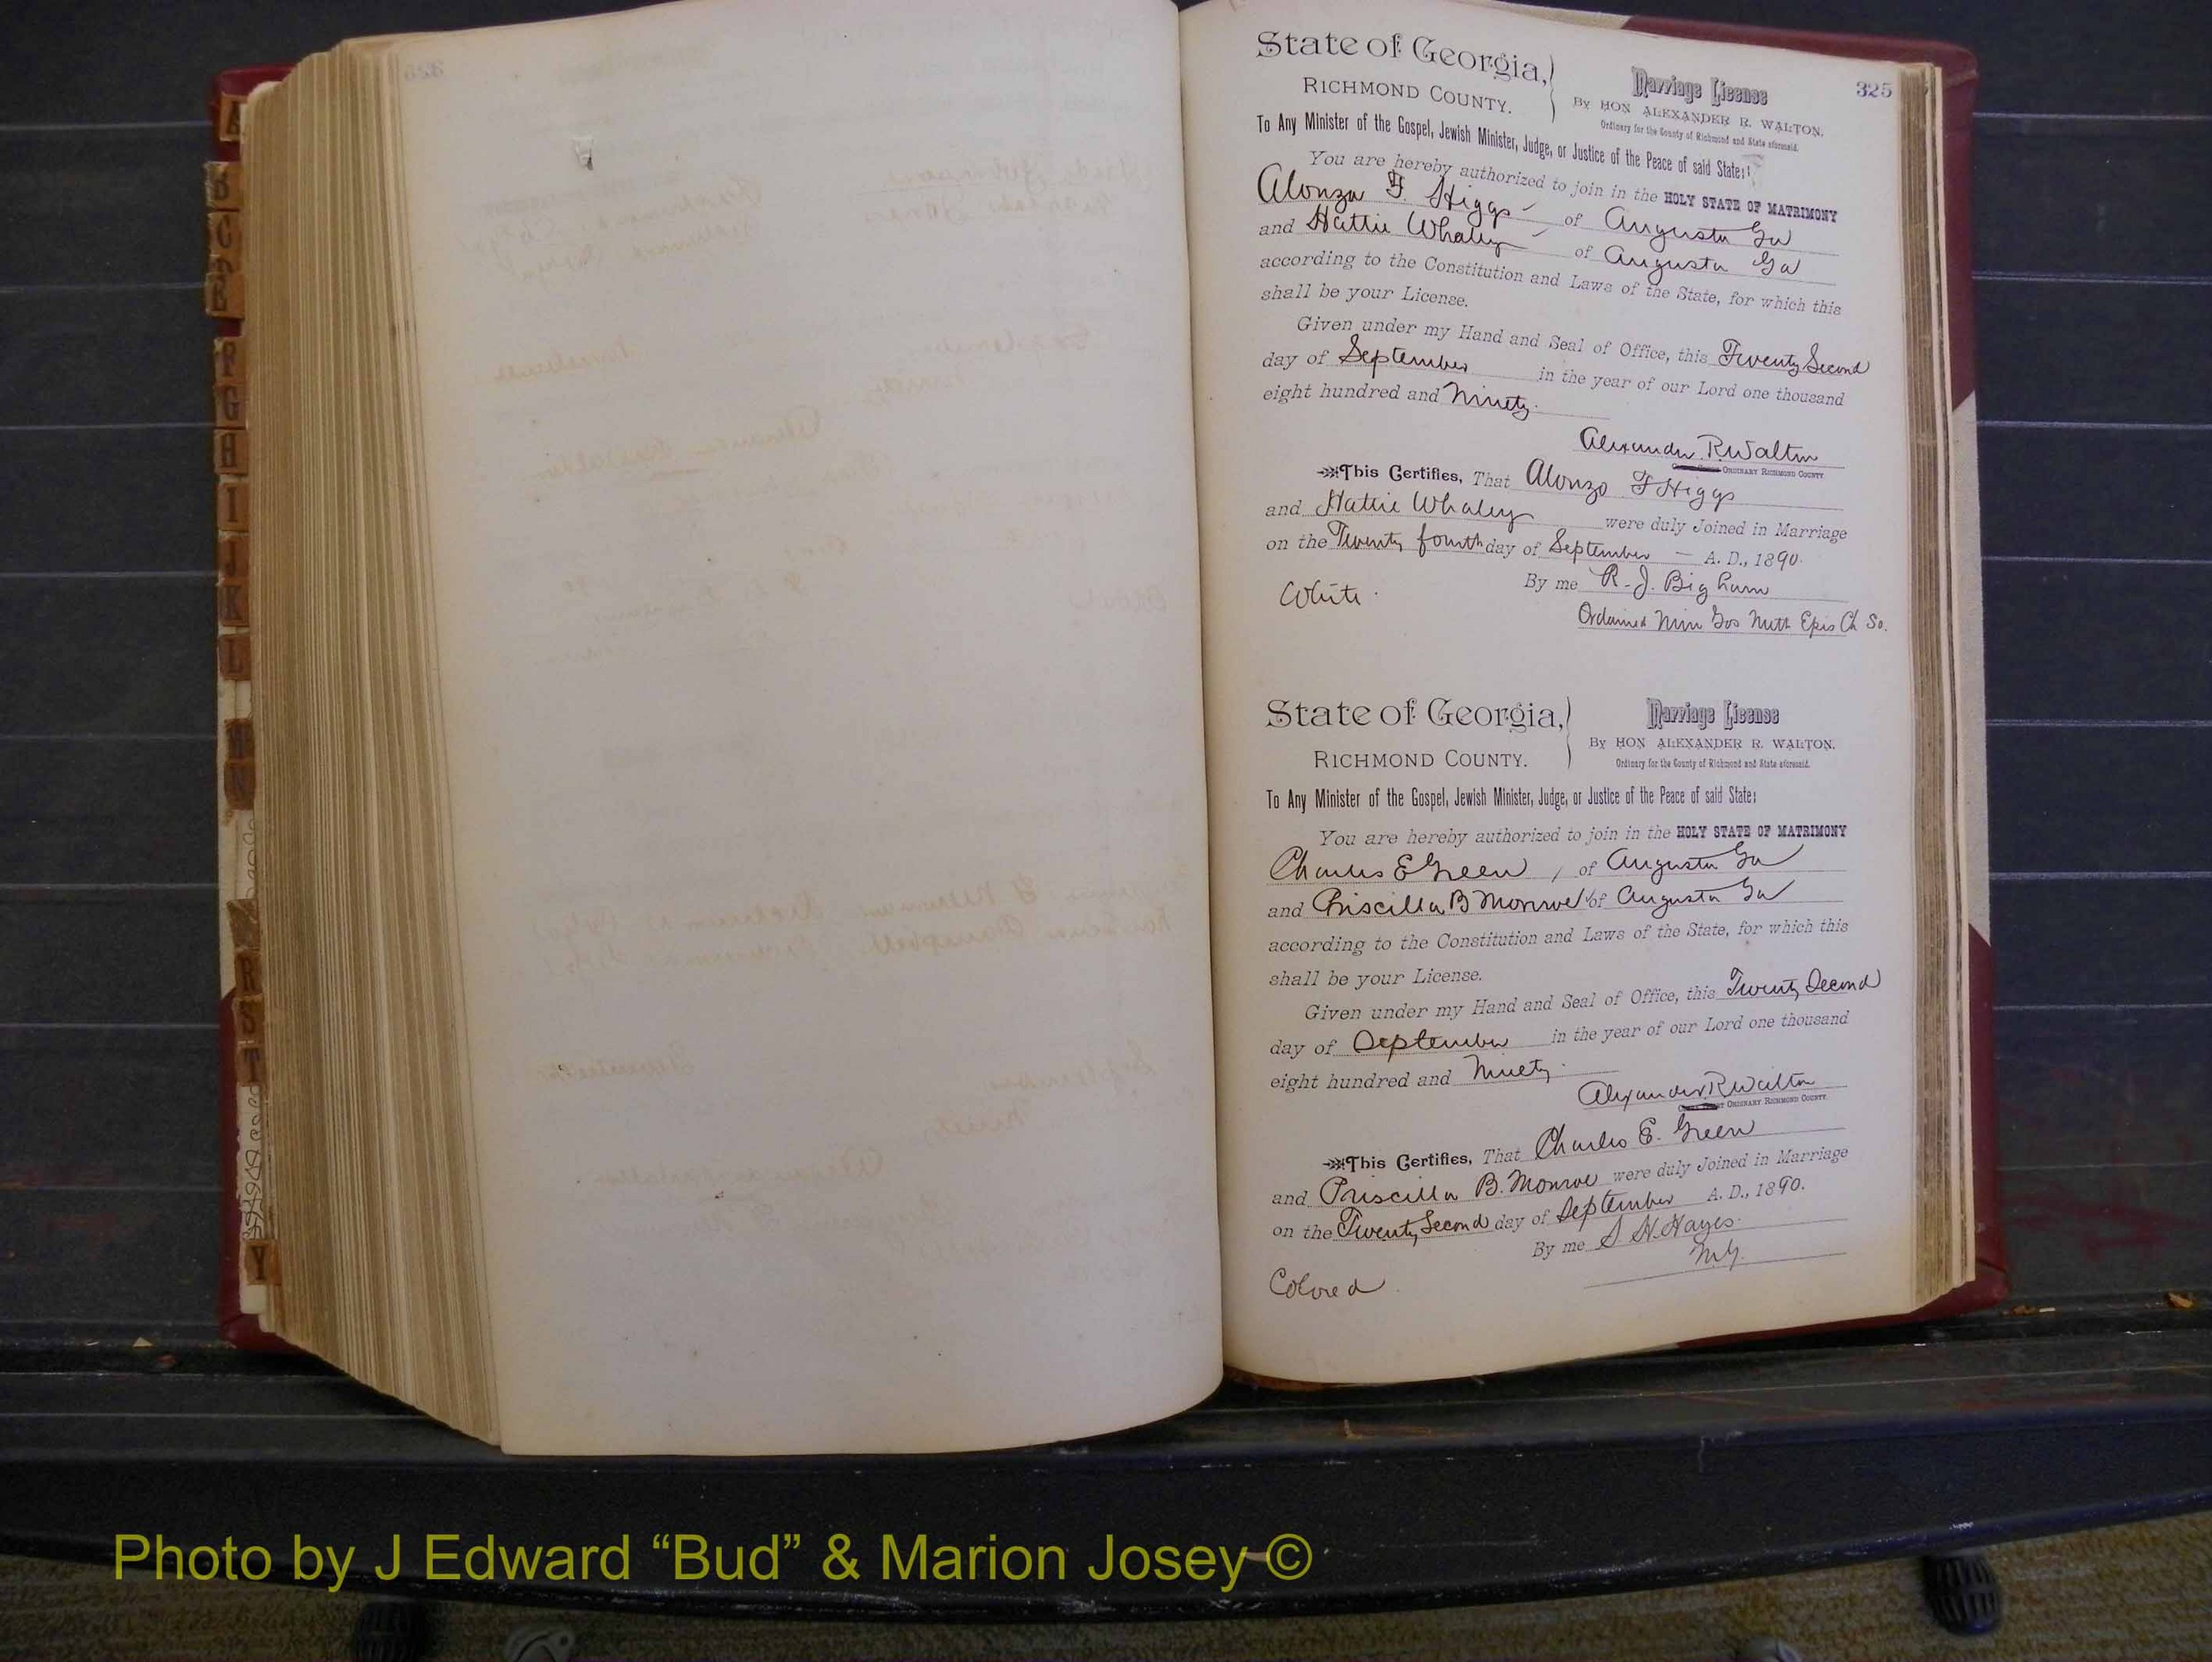 A
B
C
D
E
F
G
H
I
J
K
L
M
N
R
S
T
Y
325
State of Georgia,
RICHMOND COUNTY.
Marriage License
By HON ALEXANDER R. WALTON.
Ordinary for the County of Richmond and State aforesaid.
To Any Minister of the Gospel, Jewish Minister, Judge, or Justice of the Peace of said State:
You are hereby authorized to join in the HOLY STATE OF MATRIMONY
Alonza F. Higgs of Augusta Ga
and Hattie Whaley of Augusta Ga
according to the Constitution and Laws of the State, for which this
shall be your License.
Given under my Hand and Seal of Office, this Twenty Second
day of September in the year of our Lord one thousand
eight hundred and Ninety.
Alexander R Walton
ORDINARY RICHMOND COUNTY
This Certifies, That Alonzo F Higgs
and Hattie Whaley were duly Joined in Marriage
on the Twenty fourth day of September — A. D., 1890.
By me R. J. Bigham
White.
Ordained Min Gos Meth Epis Ch So.
State of Georgia,
RICHMOND COUNTY.
Marriage License
By HON ALEXANDER R. WALTON.
Ordinary for the County of Richmond and State aforesaid.
To Any Minister of the Gospel, Jewish Minister, Judge, or Justice of the Peace of said State:
You are hereby authorized to join in the HOLY STATE OF MATRIMONY
Charles E Green, of Augusta Ga
and Priscilla B Monroe of Augusta Ga
according to the Constitution and Laws of the State, for which this
shall be your License.
Given under my Hand and Seal of Office, this Twenty Second
day of September in the year of our Lord one thousand
eight hundred and Ninety.
Alexander R Walton
ORDINARY RICHMOND COUNTY.
This Certifies, That Charles E. Green
and Priscilla B. Monroe were duly Joined in Marriage
on the Twenty Second day of September A. D., 1890.
By me S H. Hayes.
M.G.
Colored
Photo by J Edward “Bud” & Marion Josey ©